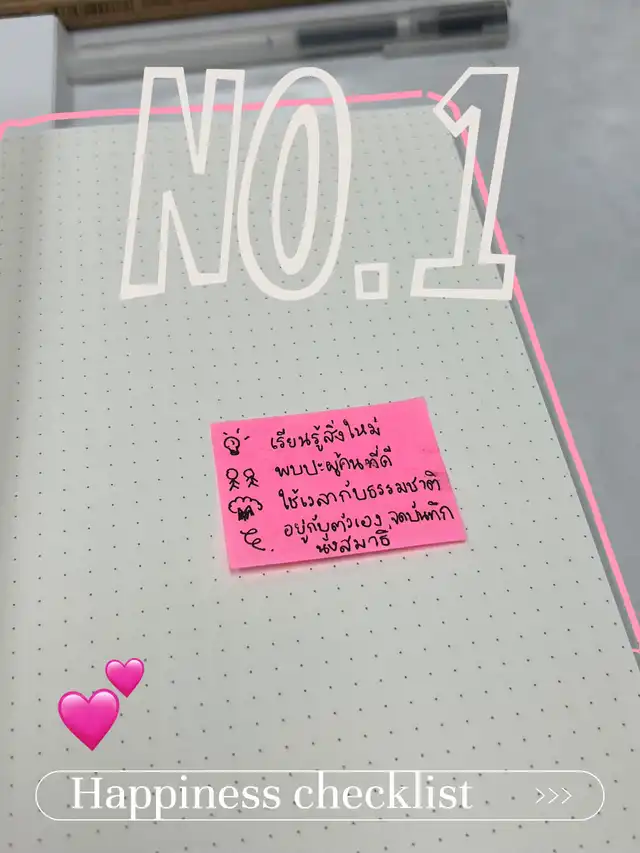 NO.1
เรียนรู้สิ่งใหม่
พบปะผู้คนที่ดี
ใช้เวลากับธรรมชาติ
อยู่กับตัวเอง จดบันทึก
นั่งสมาธิ
Happiness checklist >>>